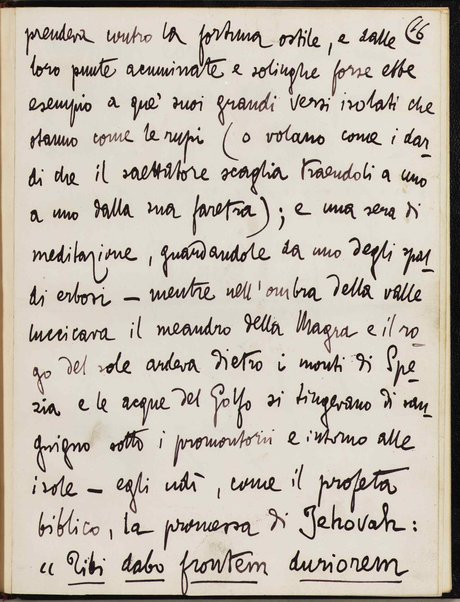 16
prendeva contro la fortuna ostile, e dalle
loro punte acuminate e solinghe forse ebbe
esempio a que' suoi grandi versi isolati che
stanno come le rupi (o volano come i dar-
di che il saettatore scaglia traendoli a uno
a uno dalla sua faretra); e una sera di
meditazione, guardandole da uno degli spal-
di erbosi — mentre nell'ombra della valle
luccicava il meandro della Magra e il ro-
go del sole ardeva dietro i monti di Spe-
zia e le acque del Golfo si tingevano di san-
guigno sotto i promontorii e intorno alle
isole — egli udì, come il profeta
biblico, la promessa di Jehovah:
"Tibi dabo frontem duriorem